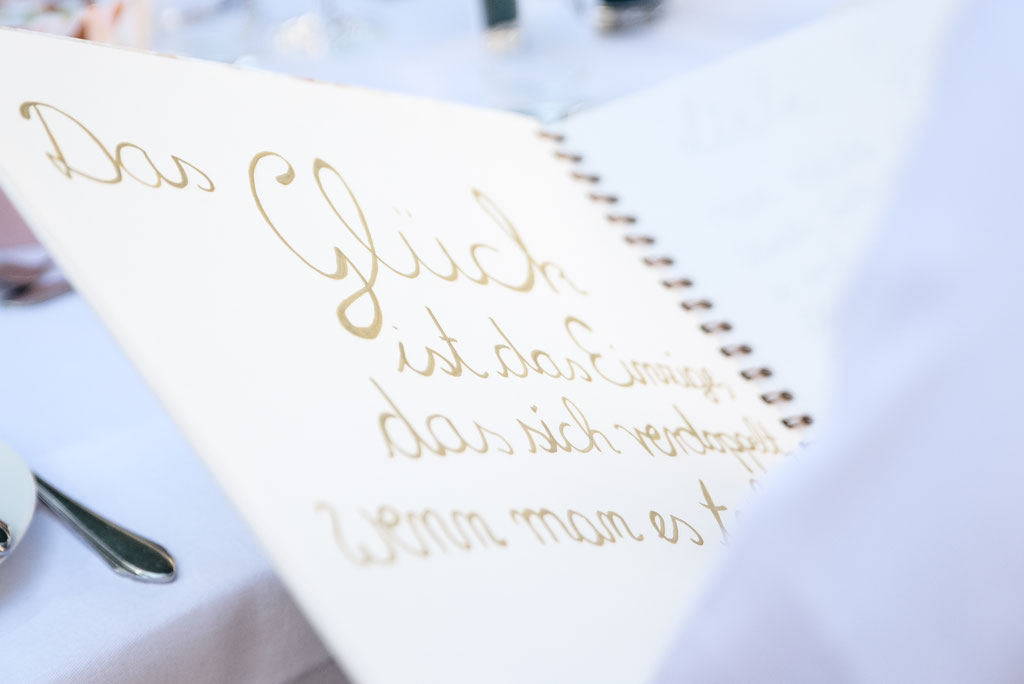 Das Glück
ist das Einzige,
das sich verdoppelt,
wenn man es